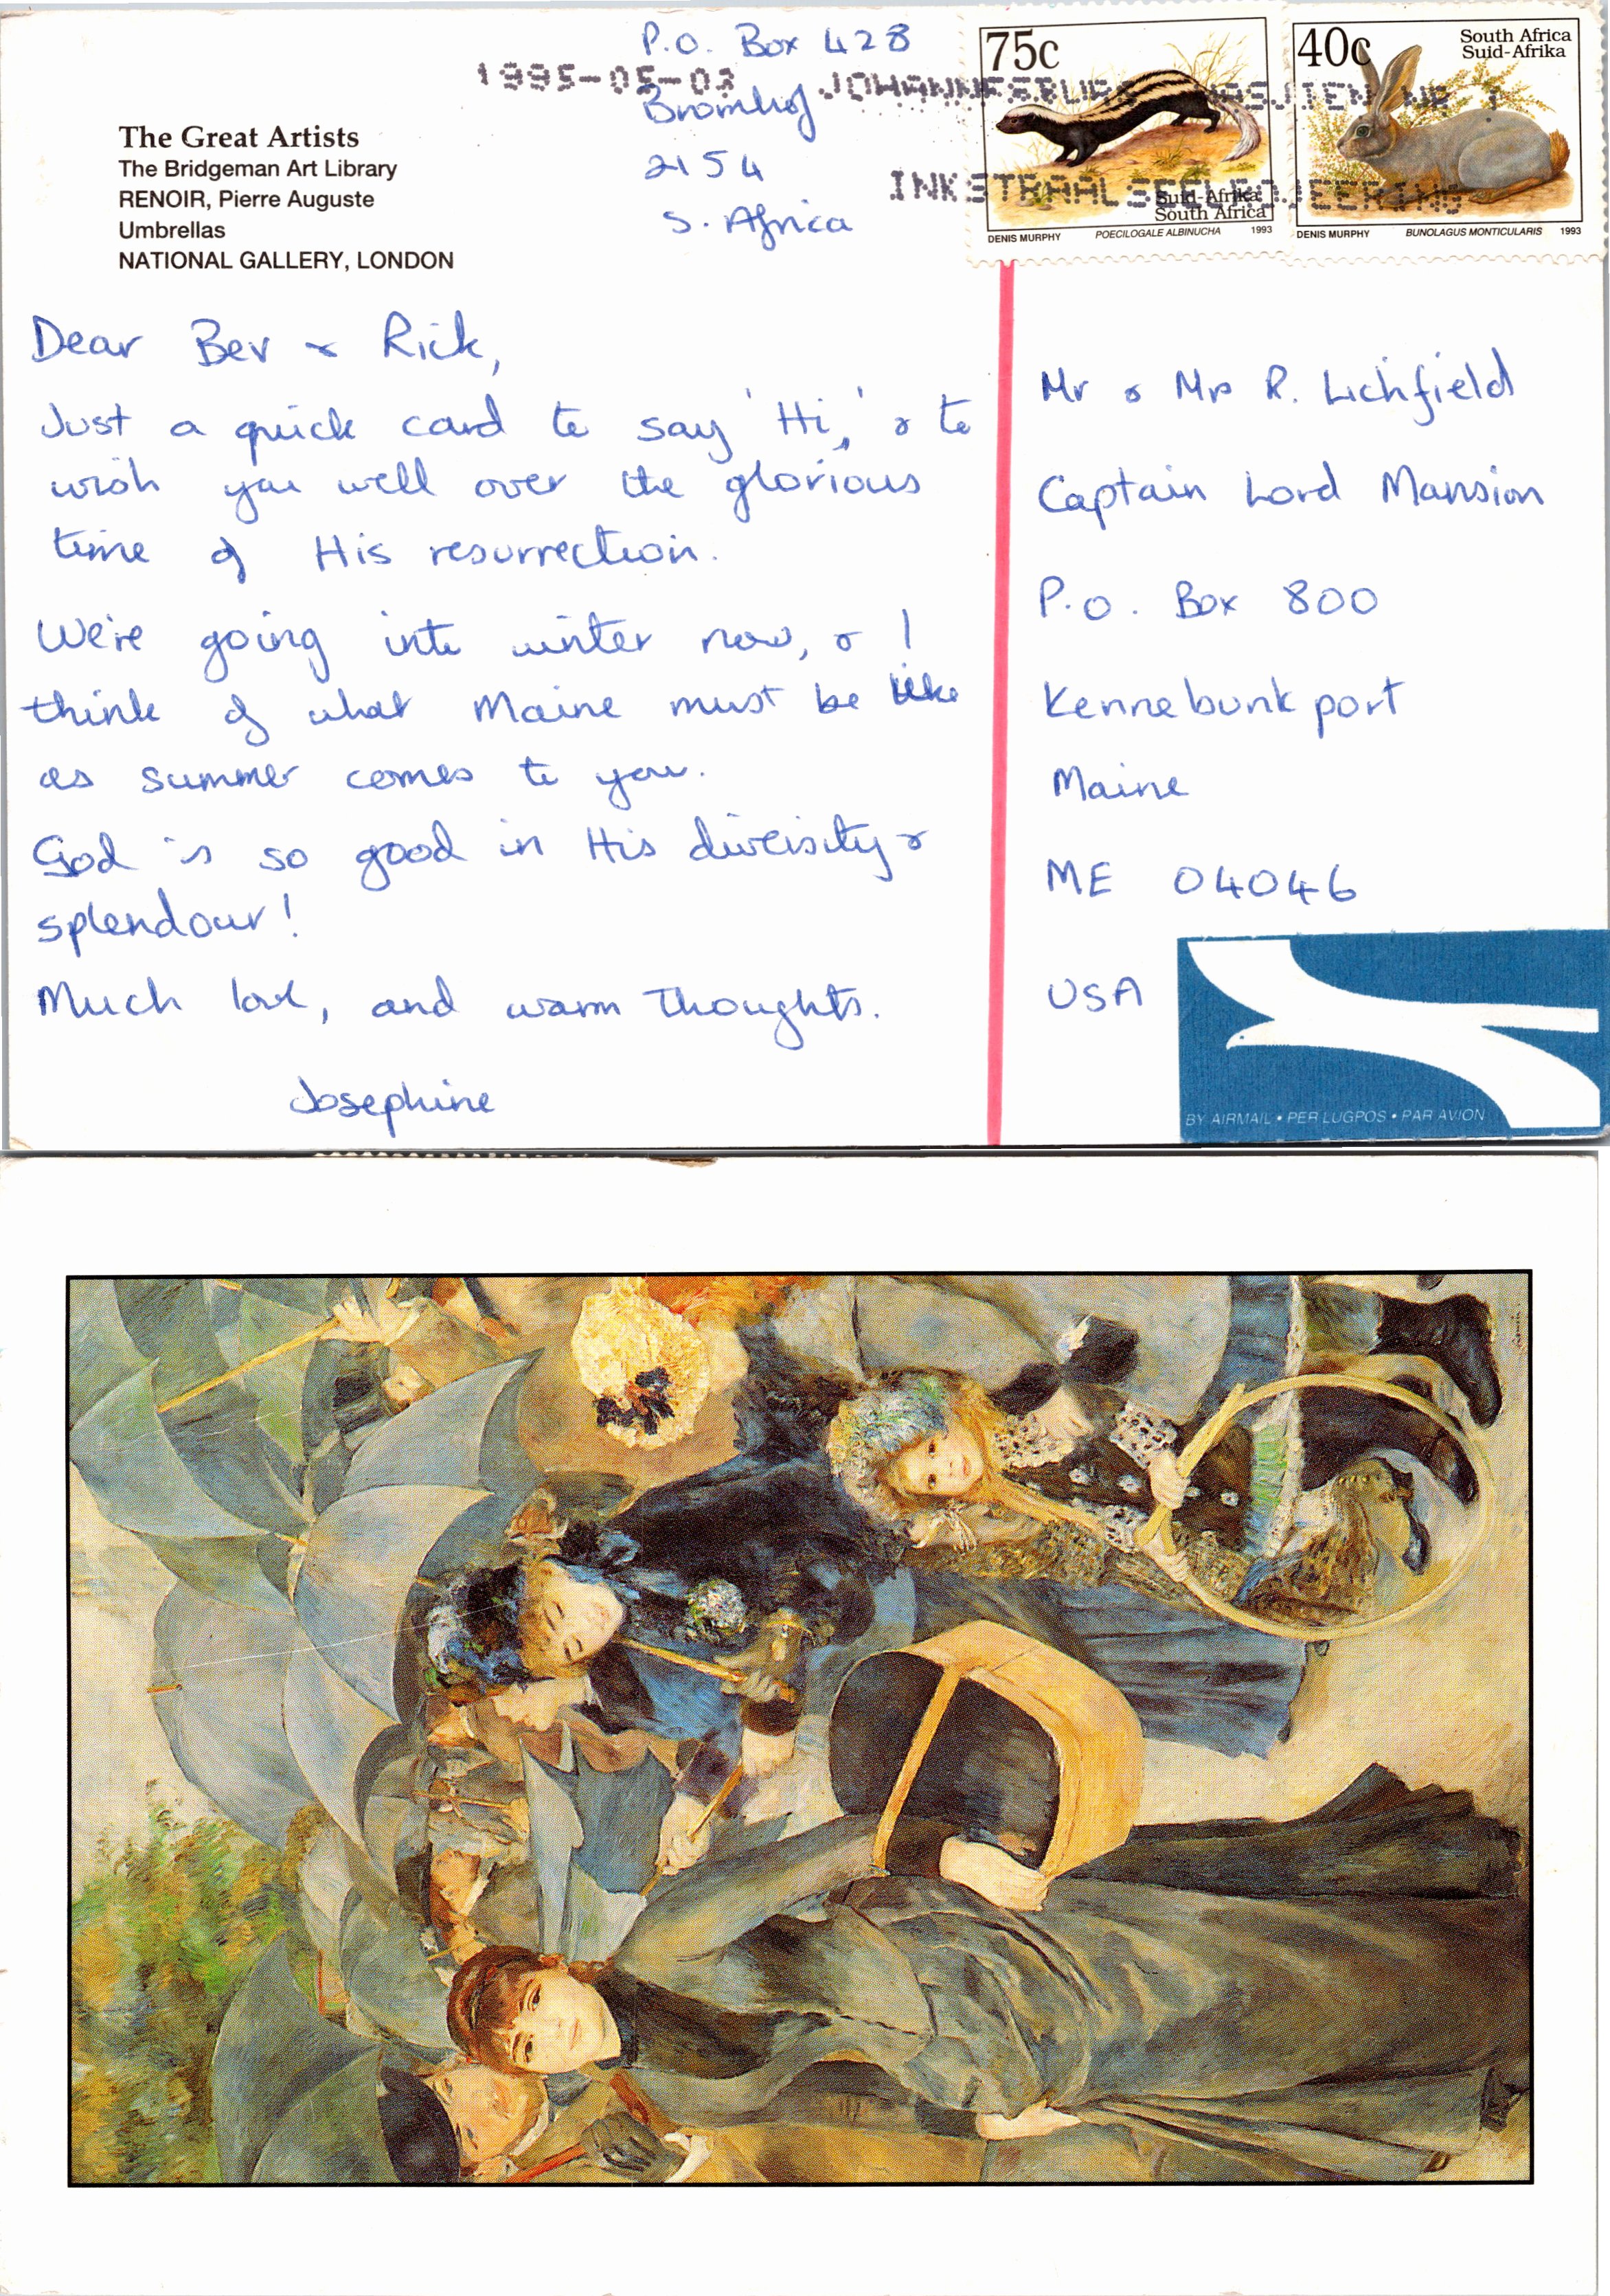 P.O. Box 428
Bromhof
2154
S. Africa
1995-05-03 JOHANNESBURG
INKSTRAALSEELPROJEERING
75c
Suid-Afrika
South Africa
DENIS MURPHY POECILOGALE ALBINUCHA 1993
40c
South Africa
Suid-Afrika
DENIS MURPHY BUNOLAGUS MONTICULARIS 1993
The Great Artists
The Bridgeman Art Library
RENOIR, Pierre Auguste
Umbrellas
NATIONAL GALLERY, LONDON
Dear Bev & Rick,
Just a quick card to say 'Hi,' & to
wish you well over the glorious
time of His resurrection.
We're going into winter now, & I
think of what Maine must be like
as summer comes to you.
God is so good in His diversity &
splendour!
Much love, and warm thoughts.
Josephine
Mr & Mrs R. Lichfield
Captain Lord Mansion
P.O. Box 800
Kennebunkport
Maine
ME 04046
USA
BY AIRMAIL • PER LUGPOS • PAR AVION